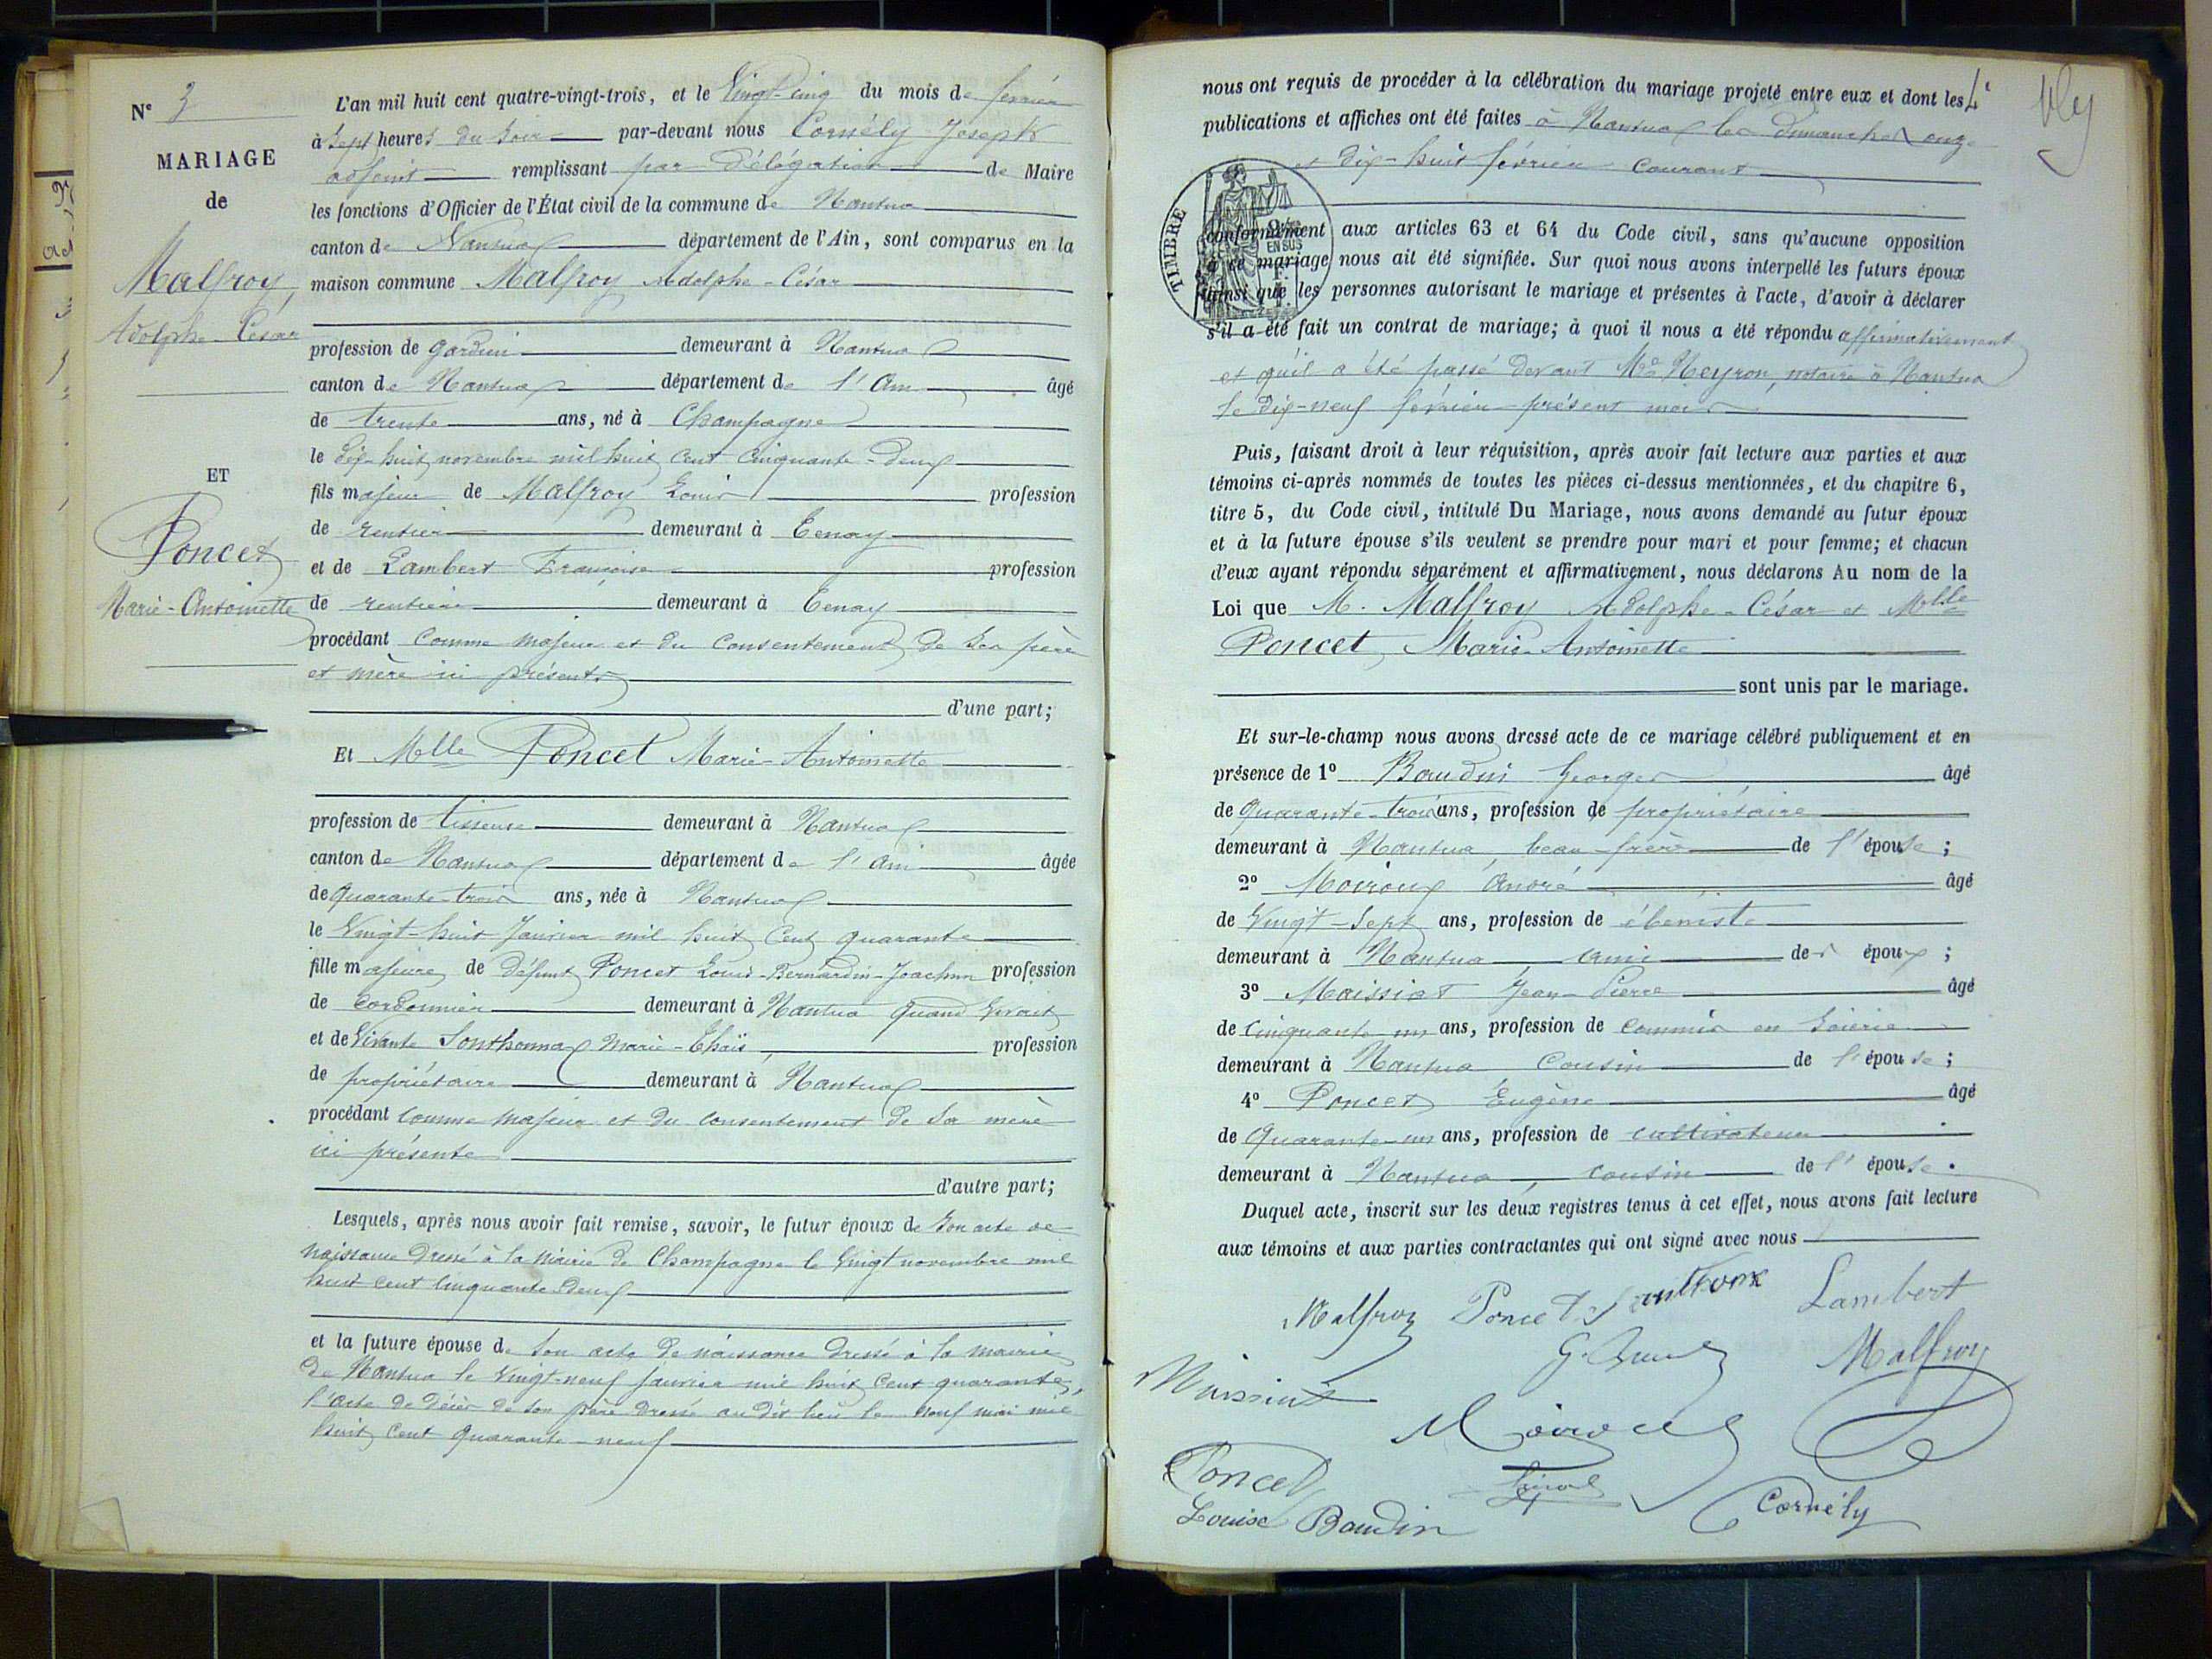 N° 3
MARIAGE
de
Malfroy,
Adolphe-César
ET
Poncet
Marie-Antoinette
L'an mil huit cent quatre-vingt-trois, et le Vingt-cinq du mois de février
à Sept heures du Soir par-devant nous Cornély Joseph
adjoint remplissant par délégation de Maire
les fonctions d'Officier de l'État civil de la commune de Nantua
canton de Nantua département de l'Ain, sont comparus en la
maison commune Malfroy Adolphe-César
profession de gardien demeurant à Nantua
canton de Nantua département de l'Ain âgé
de trente ans, né à Champagne
le dix-huit novembre mil huit cent cinquante-deux
fils majeur de Malfroy Louis profession
de rentier demeurant à Tenay
et de Lambert Françoise profession
de rentière demeurant à Tenay
procédant comme majeur et du consentement de ses père
et mère ici présents
d'une part;
Et Melle Poncet Marie-Antoinette
profession de tisseuse demeurant à Nantua
canton de Nantua département de l'Ain âgée
de quarante-trois ans, née à Nantua
le Vingt-huit Janvier mil huit Cent quarante
fille majeure de défunt Poncet Louis-Bernardin-Joachim profession
de cordonnier demeurant à Nantua quand vivait
et de Vivante Sonthonnax Marie-Thaïs profession
de propriétaire demeurant à Nantua
procédant comme majeur et du consentement de sa mère
ici présente
d'autre part;
Lesquels, après nous avoir fait remise, savoir, le futur époux de son acte de
naissance dressé à la mairie de Champagne le Vingt novembre mil
huit cent cinquante-deux
et la future épouse de son acte de naissance dressé à la mairie
de Nantua le Vingt-neuf janvier mil huit cent quarante,
l'acte de décès de son père dressé au dit lieu le neuf mai mil
huit cent quarante-neuf
nous ont requis de procéder à la célébration du mariage projeté entre eux et dont les
publications et affiches ont été faites à Nantua les dimanches onze
et dix-huit février courant
TIMBRE
EN SUS
conformément aux articles 63 et 64 du Code civil, sans qu'aucune opposition
à ce mariage nous ait été signifiée. Sur quoi nous avons interpellé les futurs époux
ainsi que les personnes autorisant le mariage et présentes à l'acte, d'avoir à déclarer
s'il a été fait un contrat de mariage; à quoi il nous a été répondu affirmativement
et qu'il a été passé devant Me Neyron, notaire à Nantua
le dix-neuf février présent mois
Puis, faisant droit à leur réquisition, après avoir fait lecture aux parties et aux
témoins ci-après nommés de toutes les pièces ci-dessus mentionnées, et du chapitre 6,
titre 5, du Code civil, intitulé Du Mariage, nous avons demandé au futur époux
et à la future épouse s'ils veulent se prendre pour mari et pour femme; et chacun
d'eux ayant répondu séparément et affirmativement, nous déclarons Au nom de la
Loi que M. Malfroy Adolphe-César et Melle
Poncet, Marie-Antoinette
sont unis par le mariage.
Et sur-le-champ nous avons dressé acte de ce mariage célébré publiquement et en
présence de 1° Baudin Georges âgé
de quarante-trois ans, profession de propriétaire
demeurant à Nantua, beau-frère de l'épouse;
2° Moiroux André âgé
de Vingt-Sept ans, profession de ébéniste
demeurant à Nantua, ami des époux;
3° Maissiat Jean-Pierre âgé
de Cinquante-un ans, profession de commis en Soierie
demeurant à Nantua Cousin de l'épouse;
4° Poncet Eugène âgé
de Quarante-un ans, profession de cultivateur
demeurant à Nantua, cousin de l'épouse.
Duquel acte, inscrit sur les deux registres tenus à cet effet, nous avons fait lecture
aux témoins et aux parties contractantes qui ont signé avec nous
Malfroy Poncet Lambert
Malfroy
Maissiat
Moiroux
Poncet
Louise Baudin
Cornély